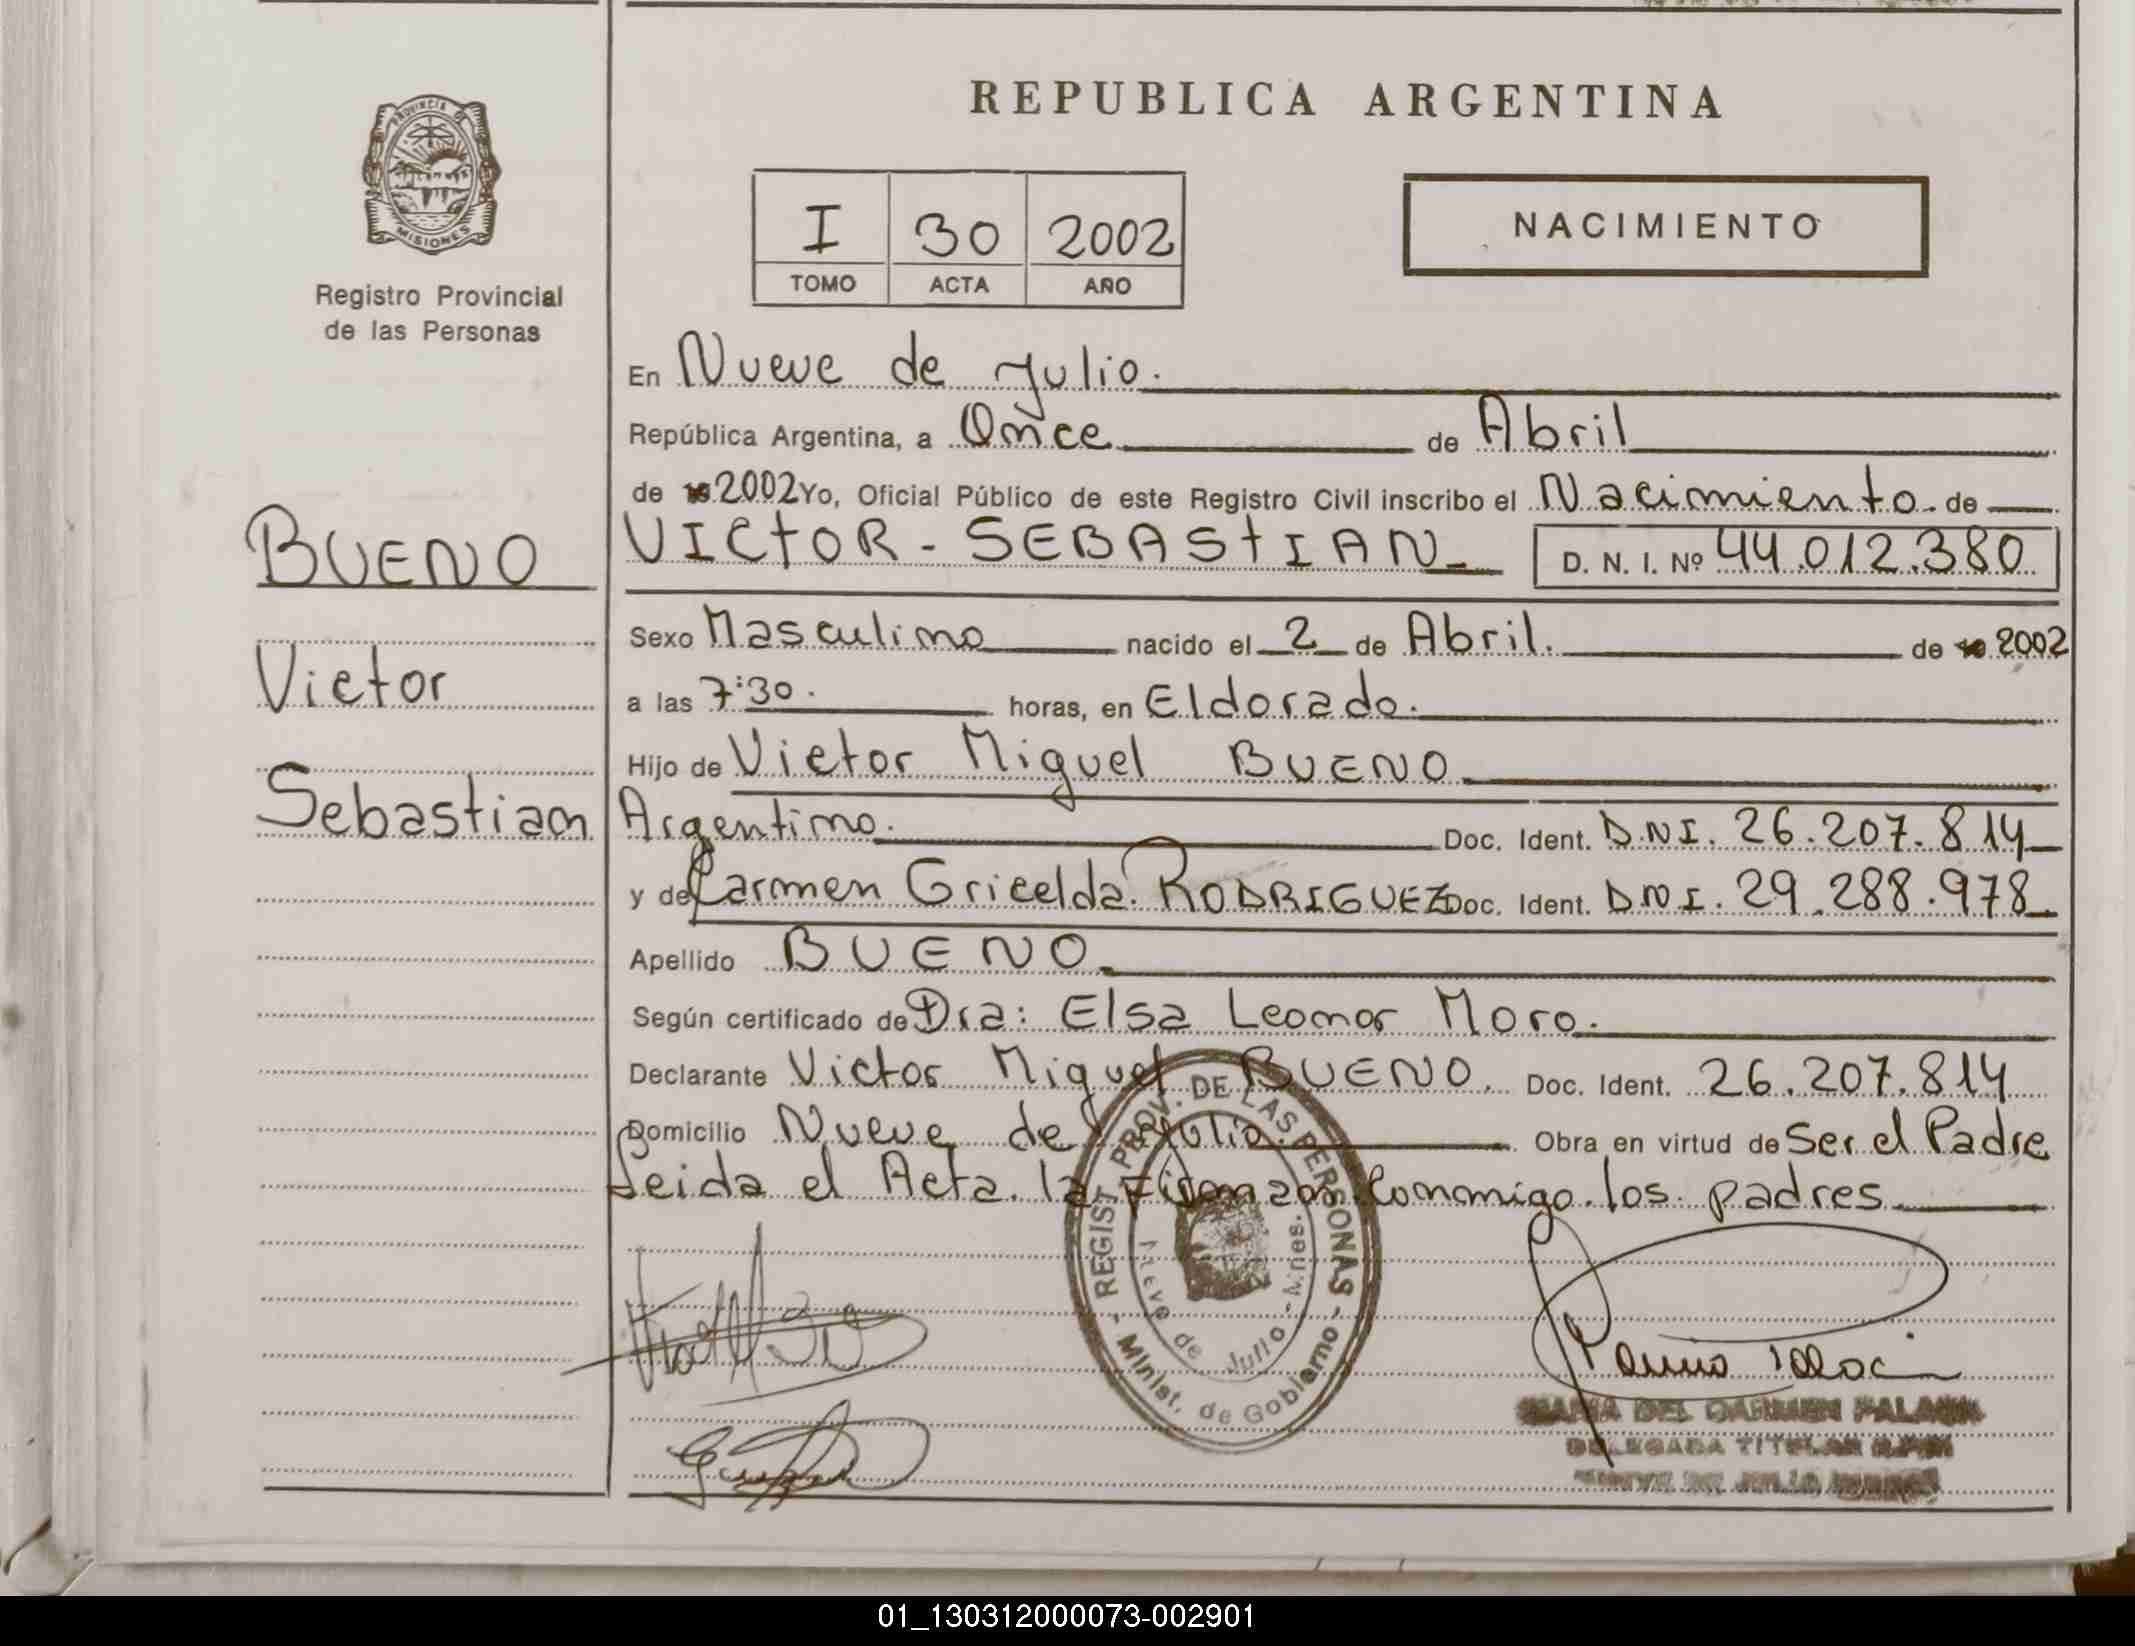 REPUBLICA ARGENTINA
PROVINCIA DE
MISIONES
Registro Provincial
de las Personas
I 30 2002
TOMO ACTA AÑO
NACIMIENTO
En Nueve de Julio.
República Argentina, a Once de Abril
de 19 2002 Yo, Oficial Público de este Registro Civil inscribo el Nacimiento de
BUENO
VICTOR - SEBASTIAN D. N. I. Nº 44.012.380
Sexo Masculino nacido el 2 de Abril. de 19 2002
Victor
a las 7:30. horas, en Eldorado.
Hijo de Victor Miguel BUENO
Sebastian
Argentino. Doc. Ident. D.N.I. 26.207.814
y de Carmen Gricelda RODRIGUEZ Doc. Ident. D.N.I. 29.288.978
Apellido BUENO
Según certificado de Dra: Elsa Leonor Moro.
Declarante Victor Miguel BUENO. Doc. Ident. 26.207.814
Domicilio Nueve de Julio. Obra en virtud de Ser el Padre
Leida el Acta la Firman Conmigo los padres
REGIST. PROV. DE LAS PERSONAS
Nueve de Julio - Mnes.
Minist. de Gobierno
MARIA DEL CARMEN
DELEGADA TITULAR
NUEVE DE JULIO
01_130312000073-002901